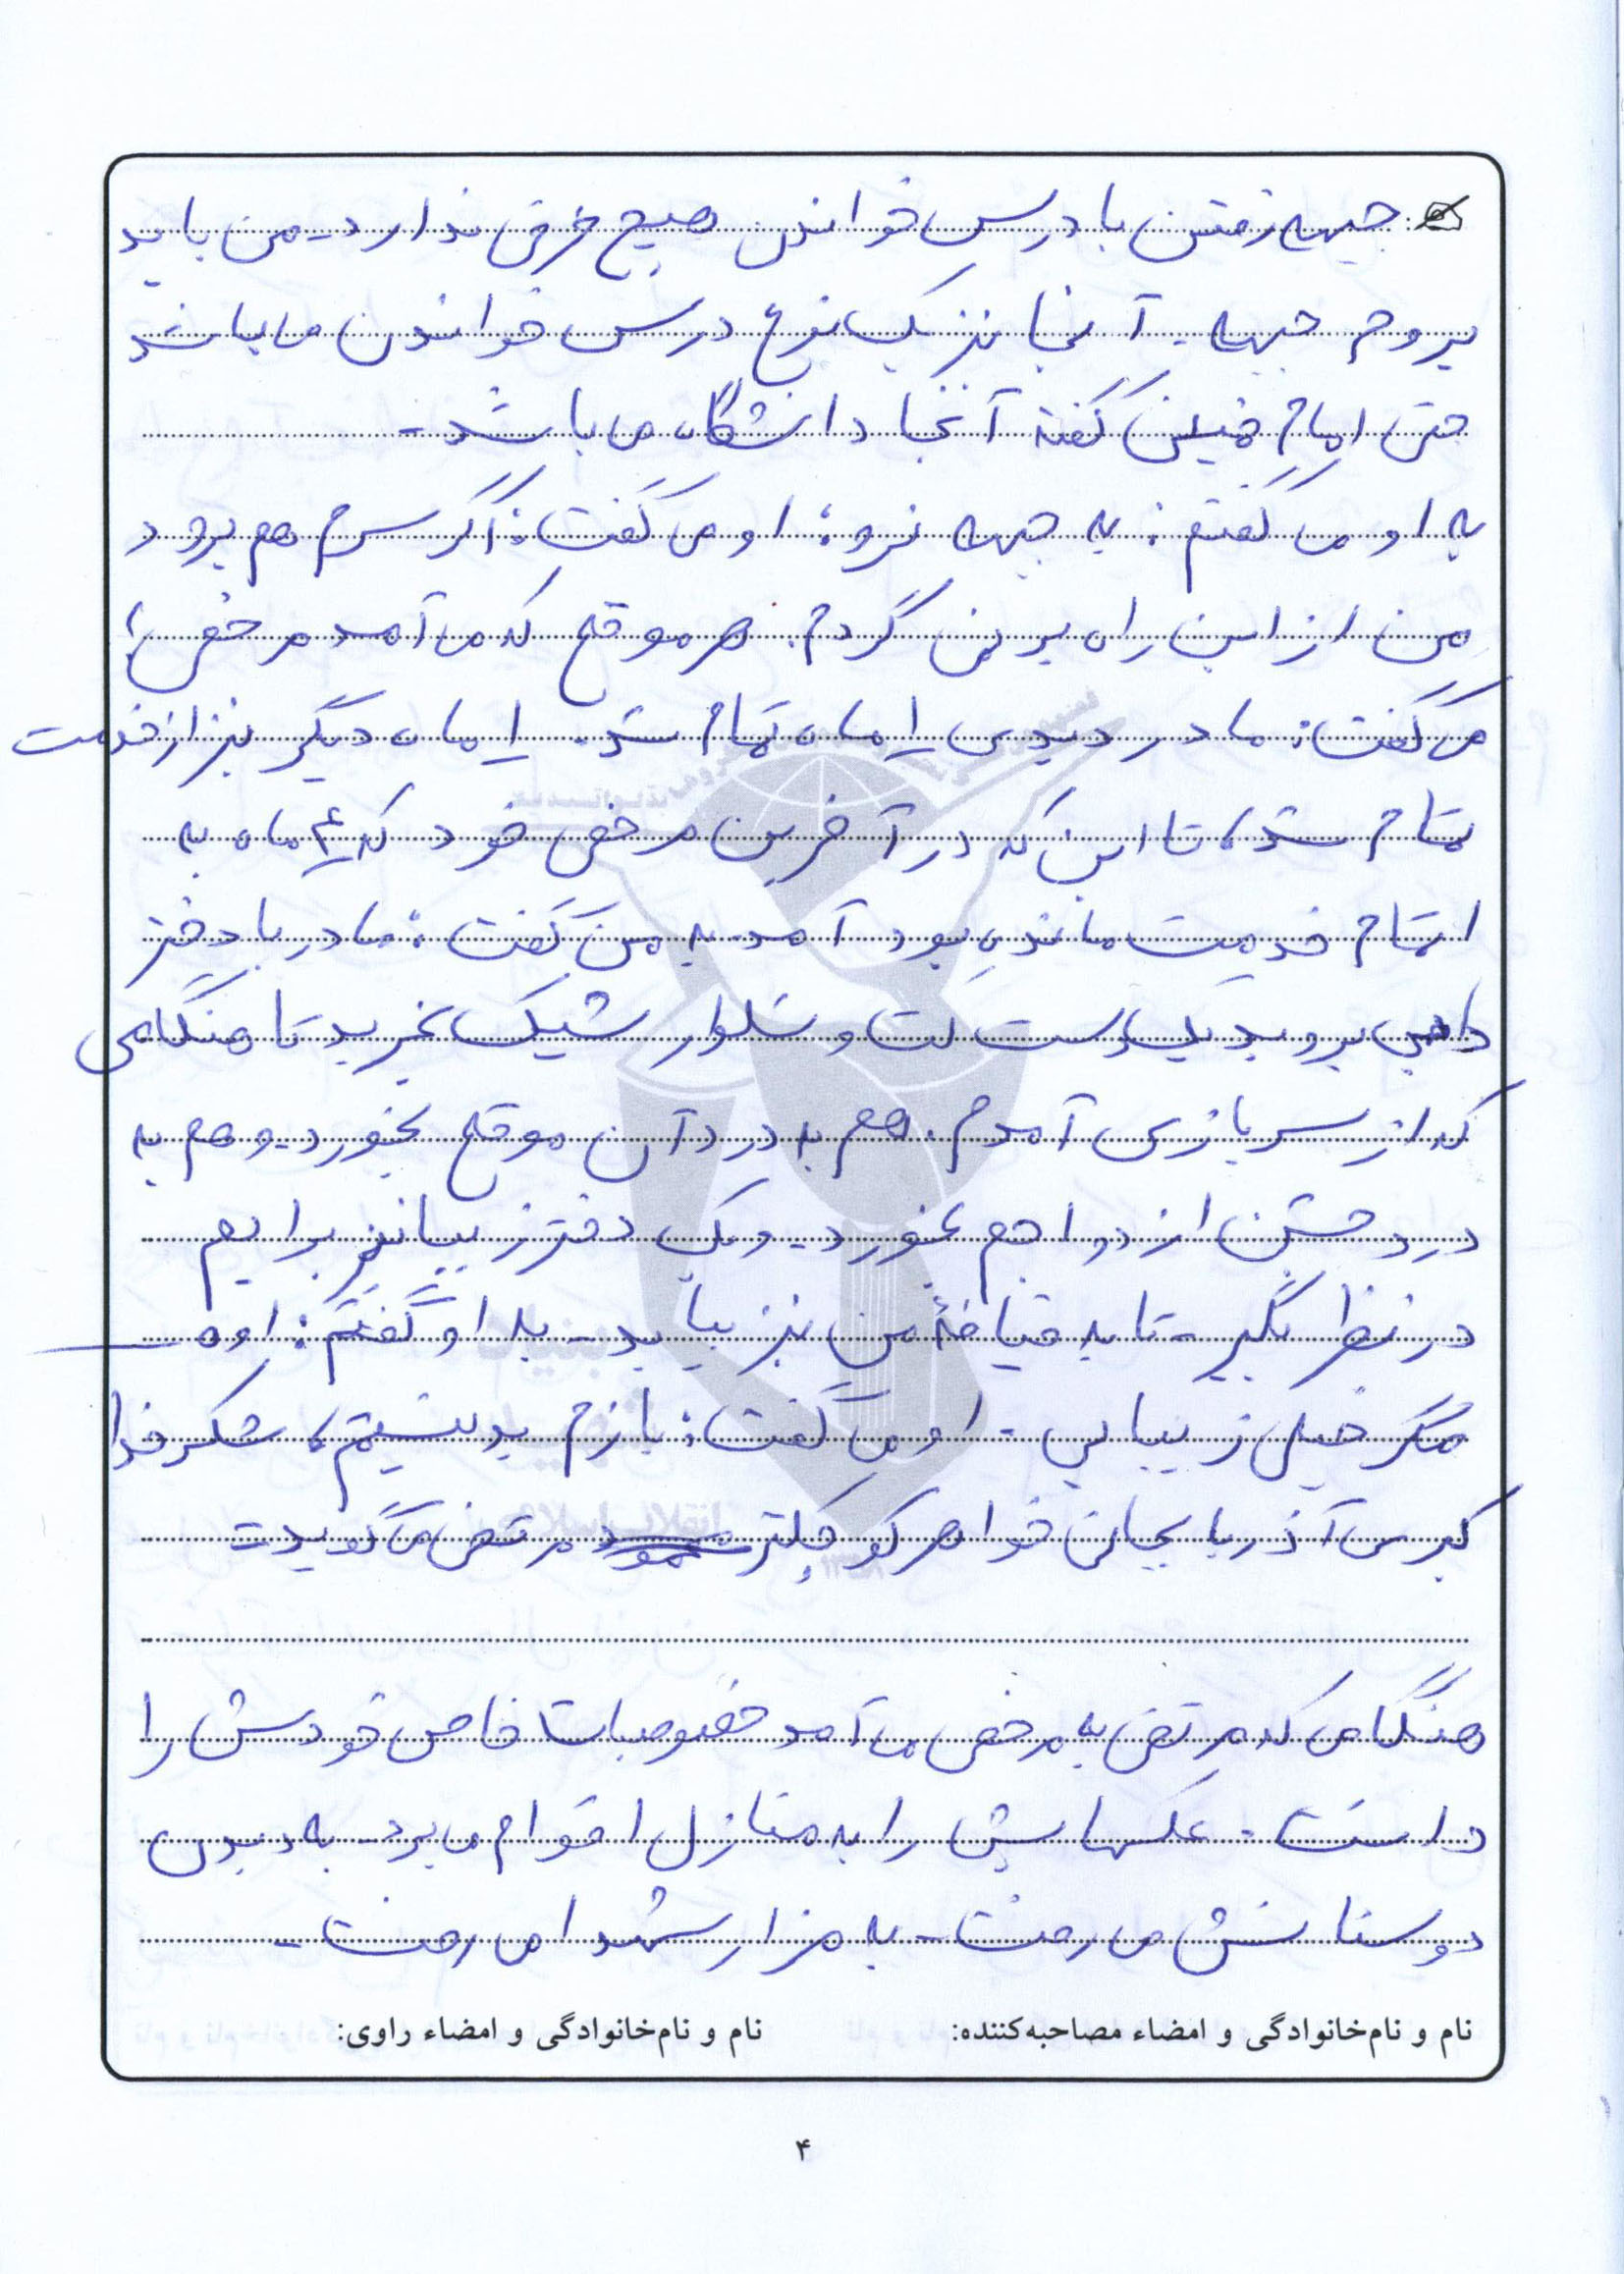 جبهه رفتن با درس خواندن هیچ فرقی ندارد. من باید
بروم جبهه. آنجا نیز یک نوع درس خواندن می باشد
حتی امام خمینی گفته آنجا دانشگاه می باشد.
به او می گفتم: به جبهه نرو؛ او می گفت: اگر سرم هم برود
من از این راه بر نمی گردم. هر موقع که می آمد مرخصی؛
می گفت: مادر دیدی ۱ ماه تمام شد. ۱ ماه دیگر نیز از خدمت
تمام شد، تا این که در آخرین مرخصی خود که ۴ ماه به
اتمام خدمت مانده بود آمد. به من گفت: مادر با دختر
دایی بروید یک دست کت و شلوار شیک بخرید تا هنگامی
که از سربازی آمدم. هم به درد آن موقع بخورد. و هم به
درد جشن ازدواجم بخورد. و یک دختر زیبا نیز برایم
در نظر بگیر. تا به قیافۀ من نیز بیاید. به او گفتم: اوه
مگر خیلی زیبایی. او می گفت: بازم بد نیستم، شکر خدا
کبری آذربایجانی خواهر کوچکتر مرتضی می گوید
هنگامی که مرتضی به مرخصی می آمد خصوصیات خاص خودش را
داشت. عکسهایش را به منازل اقوام می برد. به دیدن
دوستانش می رفت. به مزار شهدا می رفت.
نام و نام‌خانوادگی و امضاء مصاحبه‌کننده: نام و نام‌خانوادگی و امضاء راوی:
۴